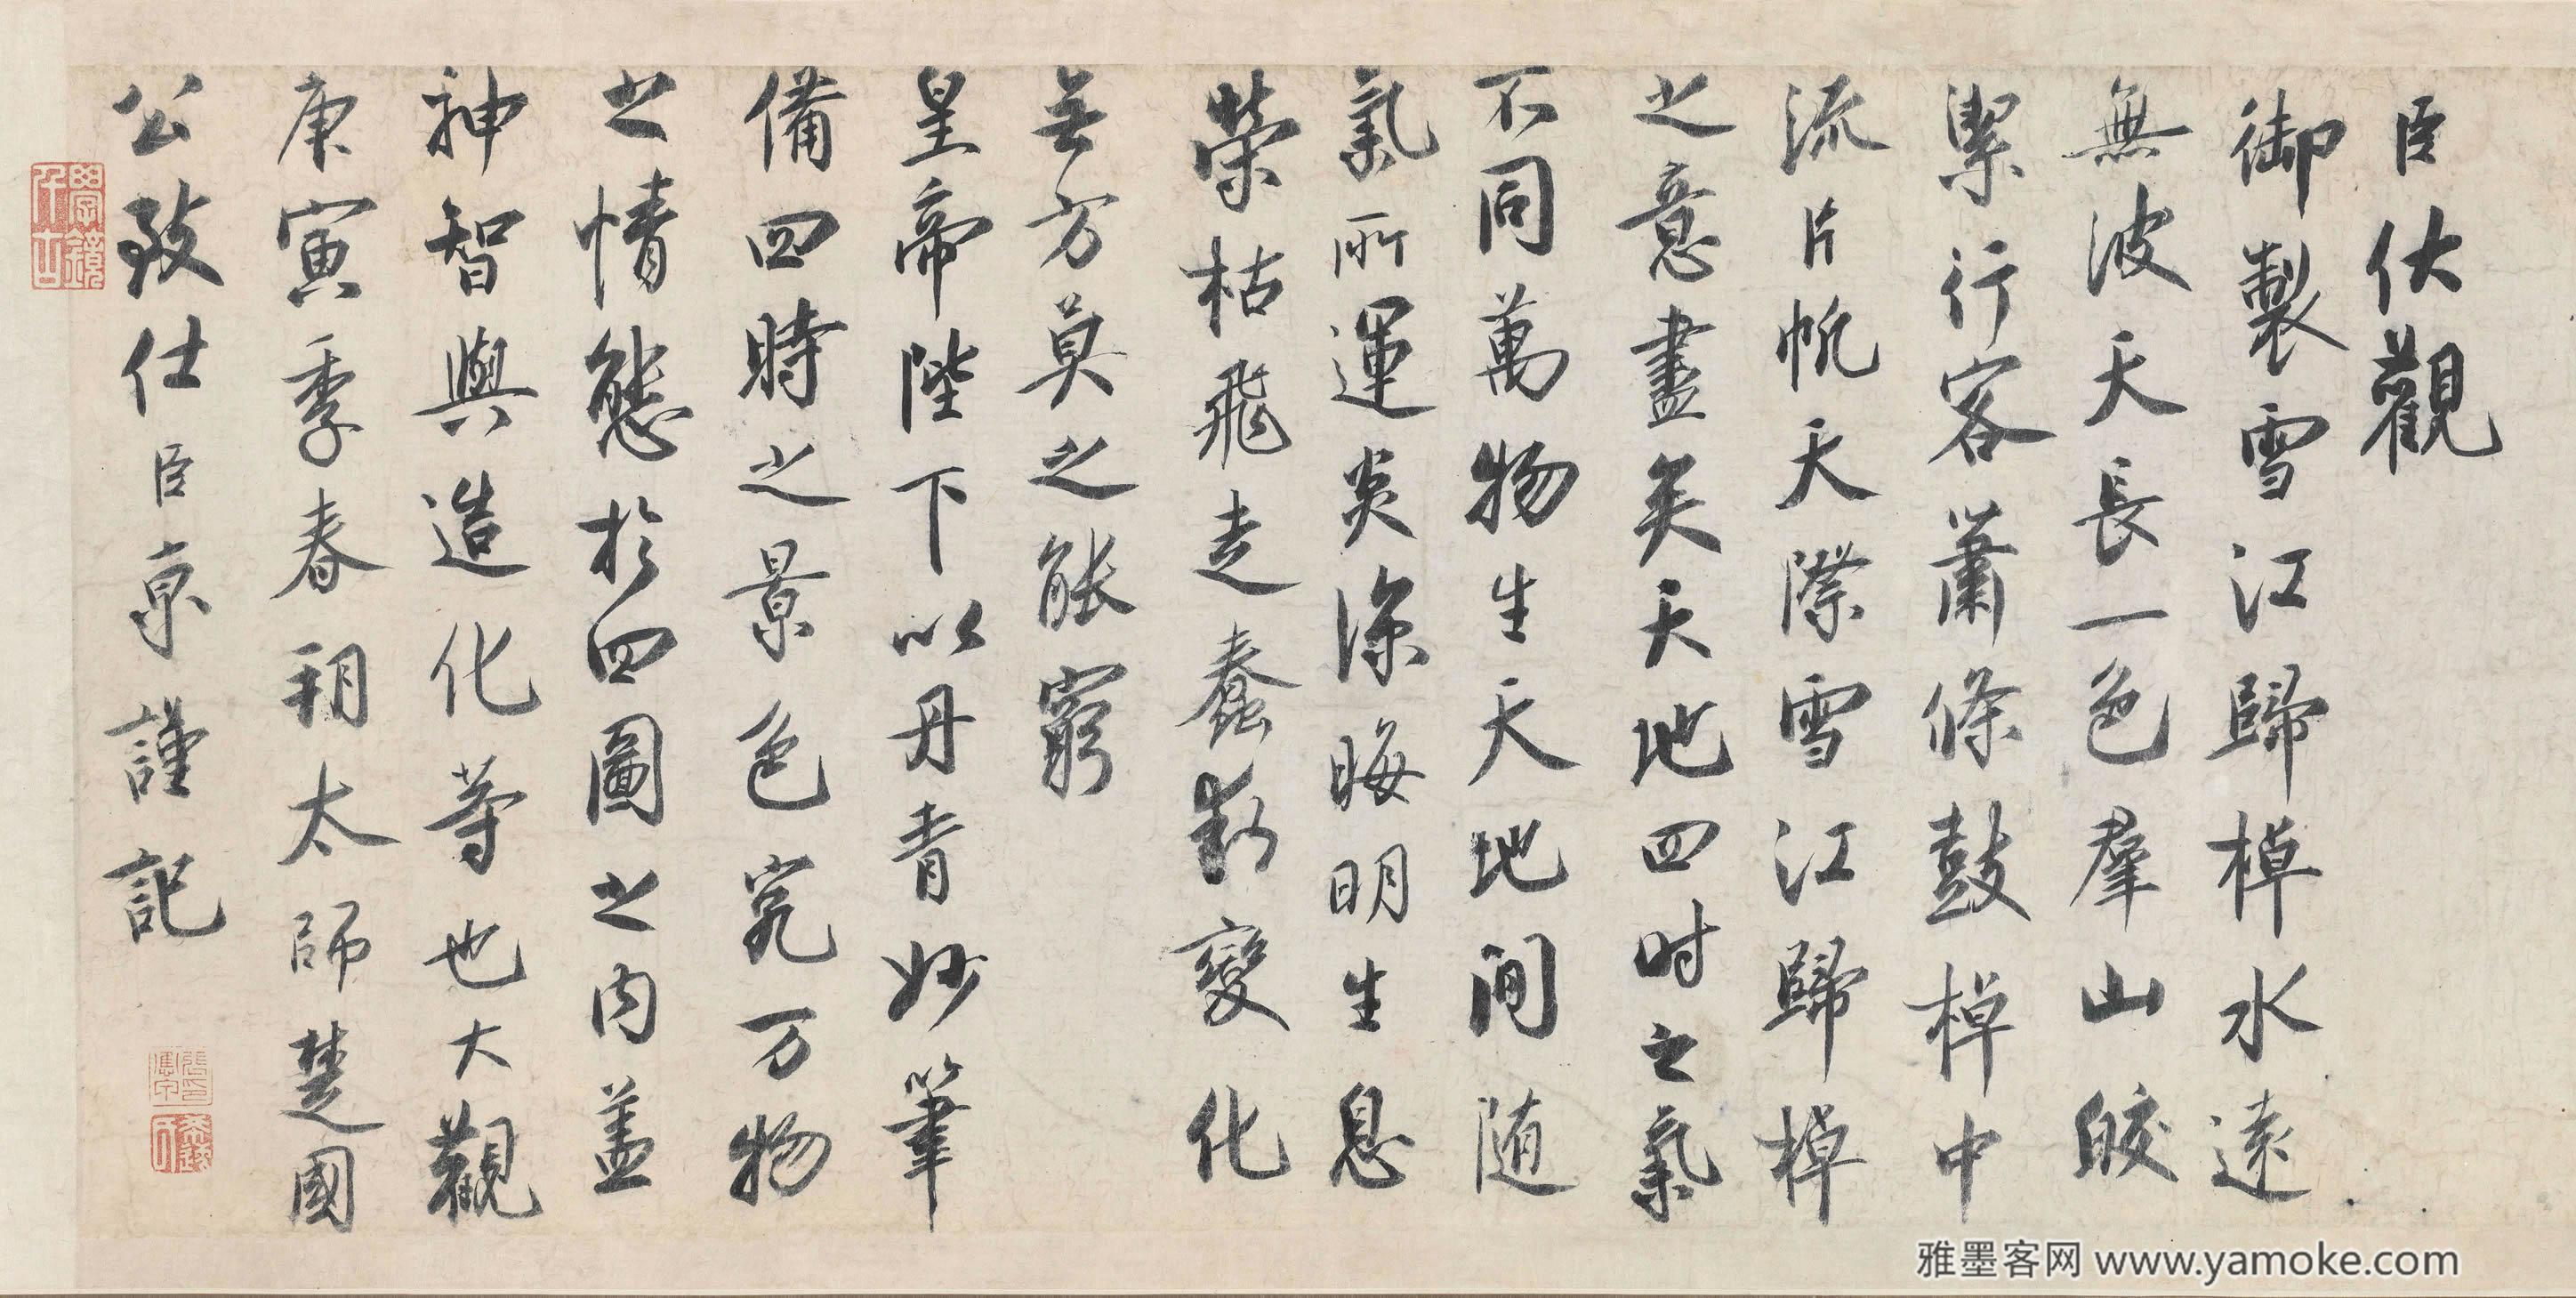 臣伏觀
御製雪江歸棹水遠
無波天長一色羣山皎
潔行客蕭條鼓棹中
流片帆天際雪江歸棹
之意盡矣天地四时之氣
不同萬物生天地間随
氣所運炎涼晦明生息
榮枯飛走蠢動變化
無方莫之能窮
皇帝陛下以丹青妙筆
備四時之景色究万物
之情態於四圖之内盖
神智與造化等也大觀
庚寅季春朔太師楚國
公致仕臣京謹記
雅墨客网 www.yamoke.com